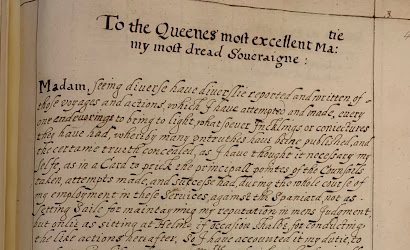 To the Queenes most excellent Ma:tie
my most dread Soveraigne:
Madam, seeing diverse have diverslie reported and written of
these voyages and actions, which I have attempted and made, every
one endevoringe to bring to light, whatsoever Incklings or coniectures
they have had, whereby many untruthes have been published, and
the certaine trueth concealed, as I have thought it necessary my
selfe, as in a Card to prick the principall pointes of the Counsails
taken, attempts made, and successe had, during the whole course of
my employment in these services against the Spaniard, not as
setting Saile for maintayning my reputation in mens Judgment
but onlie as sitting at Helme, if occasion shalbe, for conducting
the like actions hereafter, So I have accounted it my dutie, to